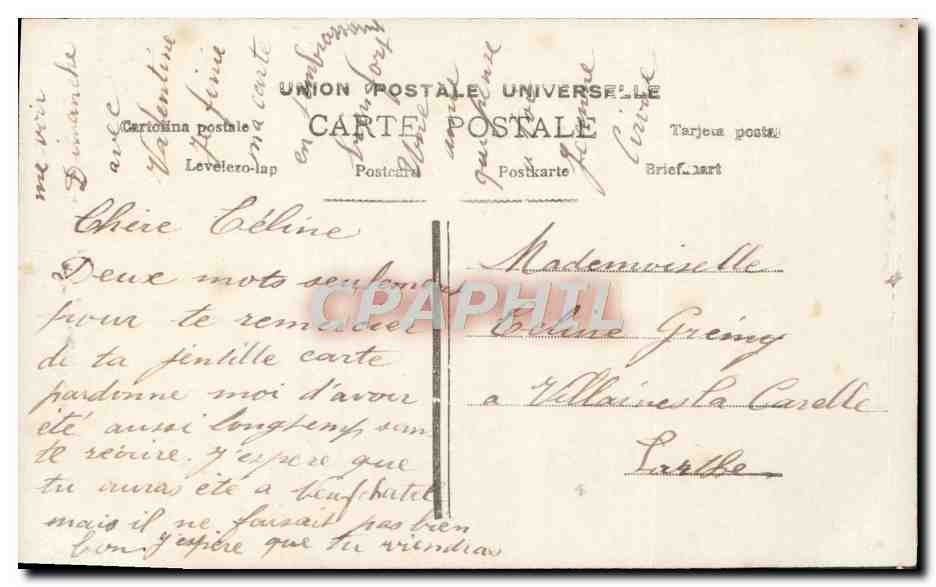 UNION POSTALE UNIVERSELLE
CARTE POSTALE
Cartolina postale
Tarjeta postal
Levelezo-lap
Postcard
Postkarte
Mademoiselle
Céline
a Villaines la Carelle
Sarthe
Chère Céline
Deux mots seulement
pour te remercier
de ta jentille carte
pardonne moi d'avoir
été aussi longtemp sans
te réécrire. j'espère que
tu auras été a Neufchatel
mais il ne faisait pas bien
bon j'espère que tu viendras
me voir
Dimanche
avec
Valentine
Je finie
ma carte
en t'embrassant
bien fort
Une
amie
qui pense
a toi
Jeanne
CPAPHIL